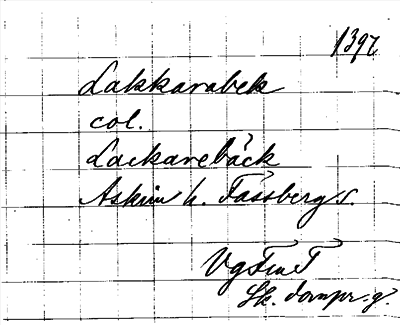 1397
Lakkarabek
col.
Lackarebäck
Askim h. Fässberg s.
VgFmT
Sk. dompr. g.